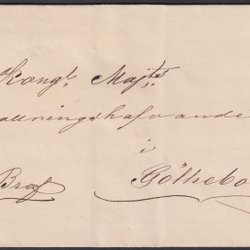 Kongl. Majts
allningshafvande
i
Bref Göthebo